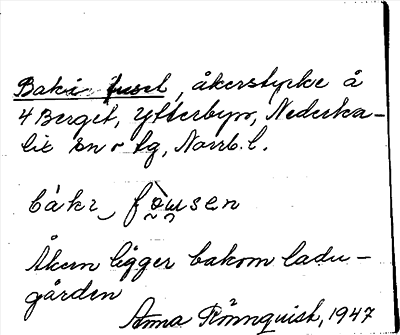 Baki fusel, åkerstycke å
4 Berget, Ytterbyn, Nederka-
lix sn o tg, Norrb. l.
bàkı fòusen
Åkern ligger bakom ladu-
gården
Anna Rönnquist, 1947